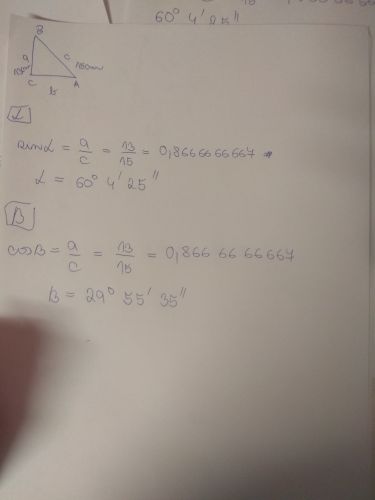 60° 4' 25"
B
a
c
C
b
A
α
sinα = a/c = 13/15 = 0,8666666667
α = 60° 4' 25"
B
cosB = a/c = 13/15 = 0,866 66 66 667
B = 29° 55' 35"